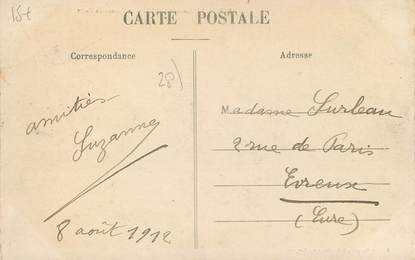 15+
CARTE POSTALE
Correspondance
Adresse
28
amitiés
Suzanne
8 août 1912
Madame Surleau
2 rue de Paris
Evreux
(Eure)